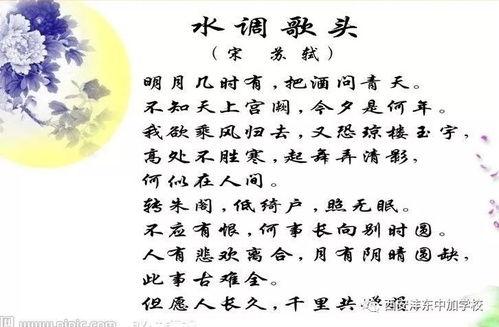 水调歌头
（宋 苏轼）
明月几时有，把酒问青天。
不知天上宫阙，今夕是何年。
我欲乘风归去，又恐琼楼玉宇，
高处不胜寒，起舞弄清影，
何似在人间。
转朱阁，低绮户，照无眠。
不应有恨，何事长向别时圆。
人有悲欢离合，月有阴晴圆缺，
此事古难全。
但愿人长久，千里共
西安沣东中加学校